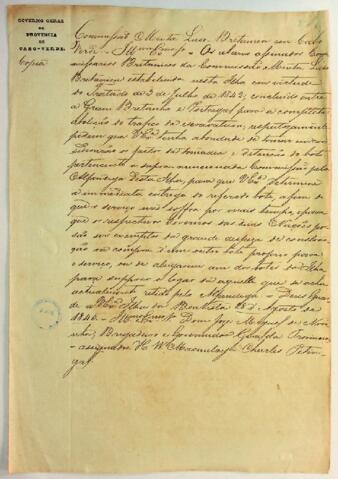 GOVERNO GERAL
DA
PROVINCIA
DE
CABO-VERDE.
Copia
Commissão Mixta Luso Britanica em Cabo
Verde - Os abaixo assinados Com
missarios Britanicos da Commissão Mixta Luso
Britanica estabelecida nesta Ilha em virtude
do Tratado de 3 de Julho de 1842, concluido entre
a Gram Bretanha e Portugal para a completa
abolição do trafico da escravatura, respeitosamente
pedem que V Exa. tenha a bondade de tomar em con
sideração o feito da tomada e detenção do bote
pertencente a supra mencionada Commissão pela
Alfandega desta Ilha, para que V Exa. determine
a immediata entrega do referido bote, afim de
que o serviço não soffra por mais tempo, e para
que os respectivos Governos das duas Nações pos
são ser exemptos da grande despeza de construc
ção ou compra d'um outro bote proprio para
o serviço, ou de alugarem um dos botes da Ilha
para supprir o logar da aquelle que se acha
actualmente retido pela Alfandega - Deus Guar
de a V Exa. Ilha da Boa Vista de Agosto de
184 - Dom José Miguel de Noro
nha, Brigadeiro e Governador Geral da Provincia
- assignados - H. W. Macaulay - Charles Pettin
gal